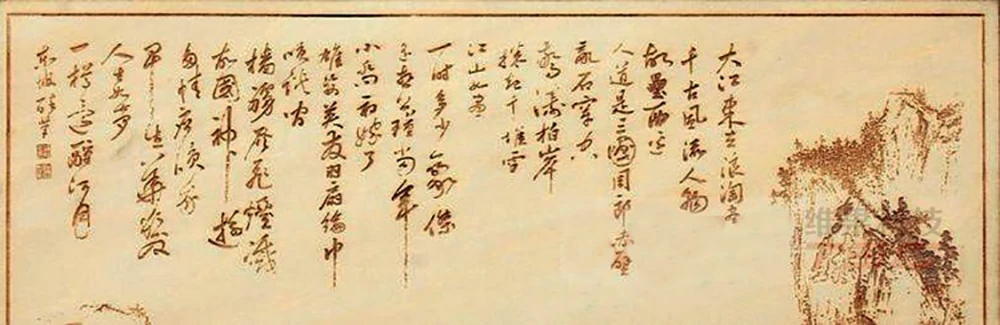 大江東去浪淘尽
千古風流人物
故壘西邊
人道是三國周郎赤壁
亂石穿空
驚濤拍岸
捲起千堆雪
江山如畫
一时多少豪傑
遥想公瑾当年
小喬初嫁了
雄姿英發羽扇綸巾
咲談間
檣艣灰飛煙滅
故國神遊
多情應笑我
早生華髮
人生如夢
一樽還酹江月
东坡